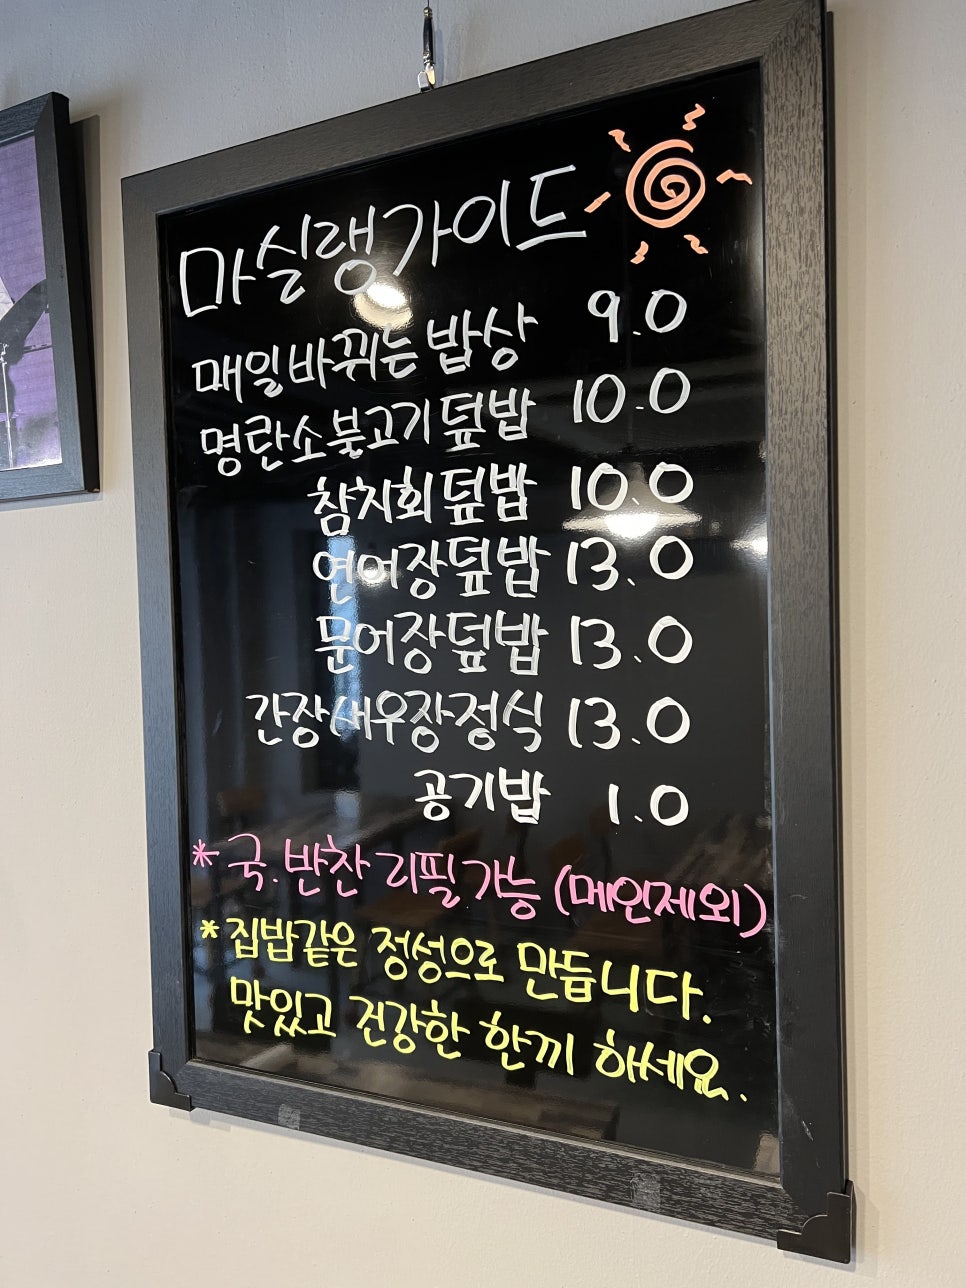 마실랭가이드
매일바뀌는 밥상 9.0
명란소불고기덮밥 10.0
참치회덮밥 10.0
연어장덮밥 13.0
문어장덮밥 13.0
간장새우장정식 13.0
공기밥 1.0
* 국.반찬 리필가능 (메인제외)
* 집밥같은 정성으로 만듭니다.
맛있고 건강한 한끼 하세요.